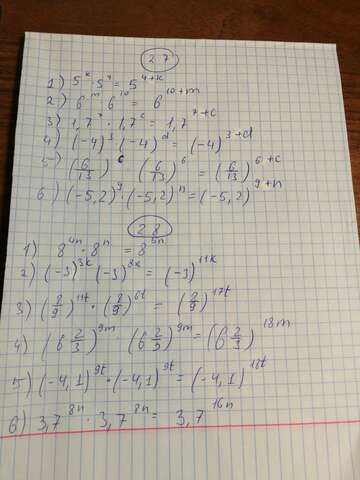 27
1) 5^k · 5^4 = 5^{4+k}
2) 6^m · 6^{10} = 6^{10+m}
3) 1,7^7 · 1,7^c = 1,7^{7+c}
4) (-4)^3 · (-4)^d = (-4)^{3+d}
5) (6/13)^c (6/13)^6 = (6/13)^{6+c}
6) (-5,2)^9 · (-5,2)^n = (-5,2)^{9+n}
28
1) 8^{4n} · 8^n = 8^{5n}
2) (-3)^{3k} (-3)^{8k} = (-3)^{11k}
3) (8/9)^{11t} · (8/9)^{6t} = (8/9)^{17t}
4) (6 2/3)^{9m} (6 2/3)^{9m} = (6 2/3)^{18m}
5) (-4,1)^{9t} · (-4,1)^{9t} = (-4,1)^{18t}
6) 3,7^{8n} · 3,7^{8n} = 3,7^{16n}